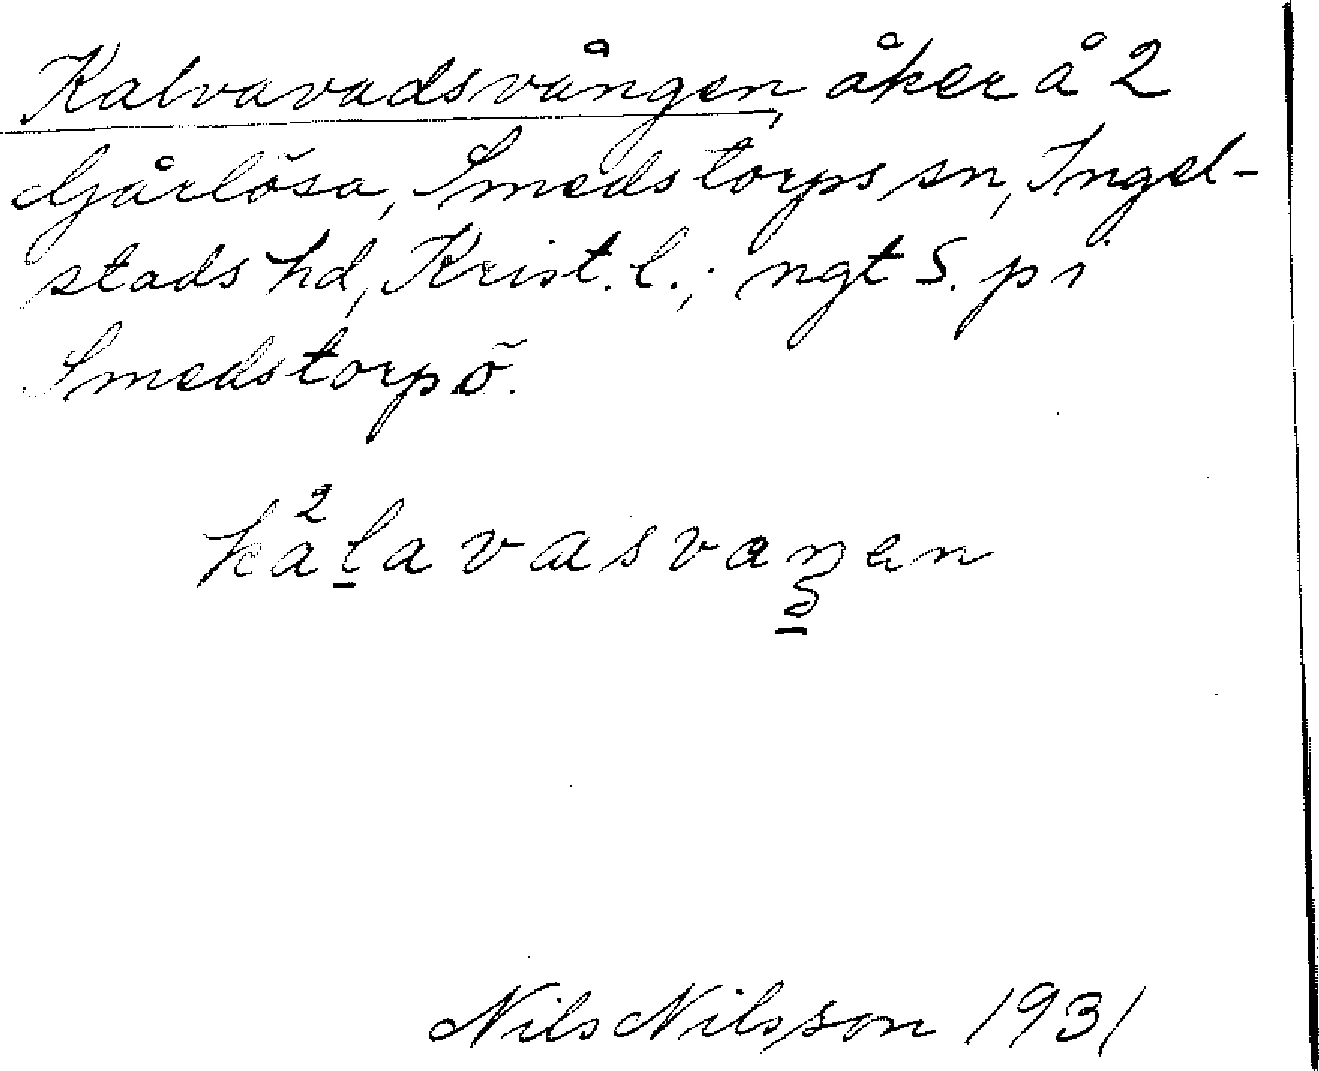 Kalvavadsvången, åker å 2
Gårlösa, Smedstorps sn, Ingel-
stads hd, Krist. l.; ngt S. p i
Smedstorp ö.
Nils Nilsson 1931